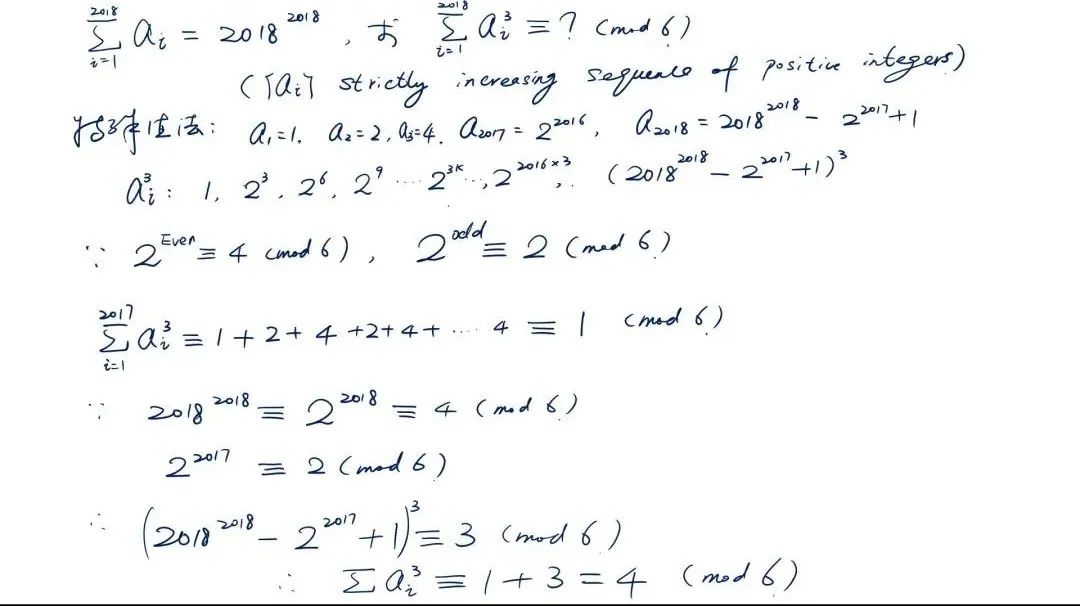 $\sum_{i=1}^{2018} a_i = 2018^{2018}$, 求 $\sum_{i=1}^{2018} a_i^3 \equiv ?$ (mod 6)
({a_i} strictly increasing sequence of positive integers)
特殊值法: $a_1=1$, $a_2=2$, $a_3=4$. $a_{2017}=2^{2016}$, $a_{2018}=2018^{2018}-2^{2017}+1$
$a_i^3$: $1, 2^3, 2^6, 2^9 \cdots 2^{3k} \cdots, 2^{2016×3}$, $(2018^{2018}-2^{2017}+1)^3$
∵ $2^{Even} \equiv 4$ (mod 6), $2^{odd} \equiv 2$ (mod 6)
$\sum_{i=1}^{2017} a_i^3 \equiv 1+2+4+2+4+\cdots 4 \equiv 1$ (mod 6)
∵ $2018^{2018} \equiv 2^{2018} \equiv 4$ (mod 6)
$2^{2017} \equiv 2$ (mod 6)
∴ $(2018^{2018}-2^{2017}+1)^3 \equiv 3$ (mod 6)
∴ $\sum a_i^3 \equiv 1+3=4$ (mod 6)